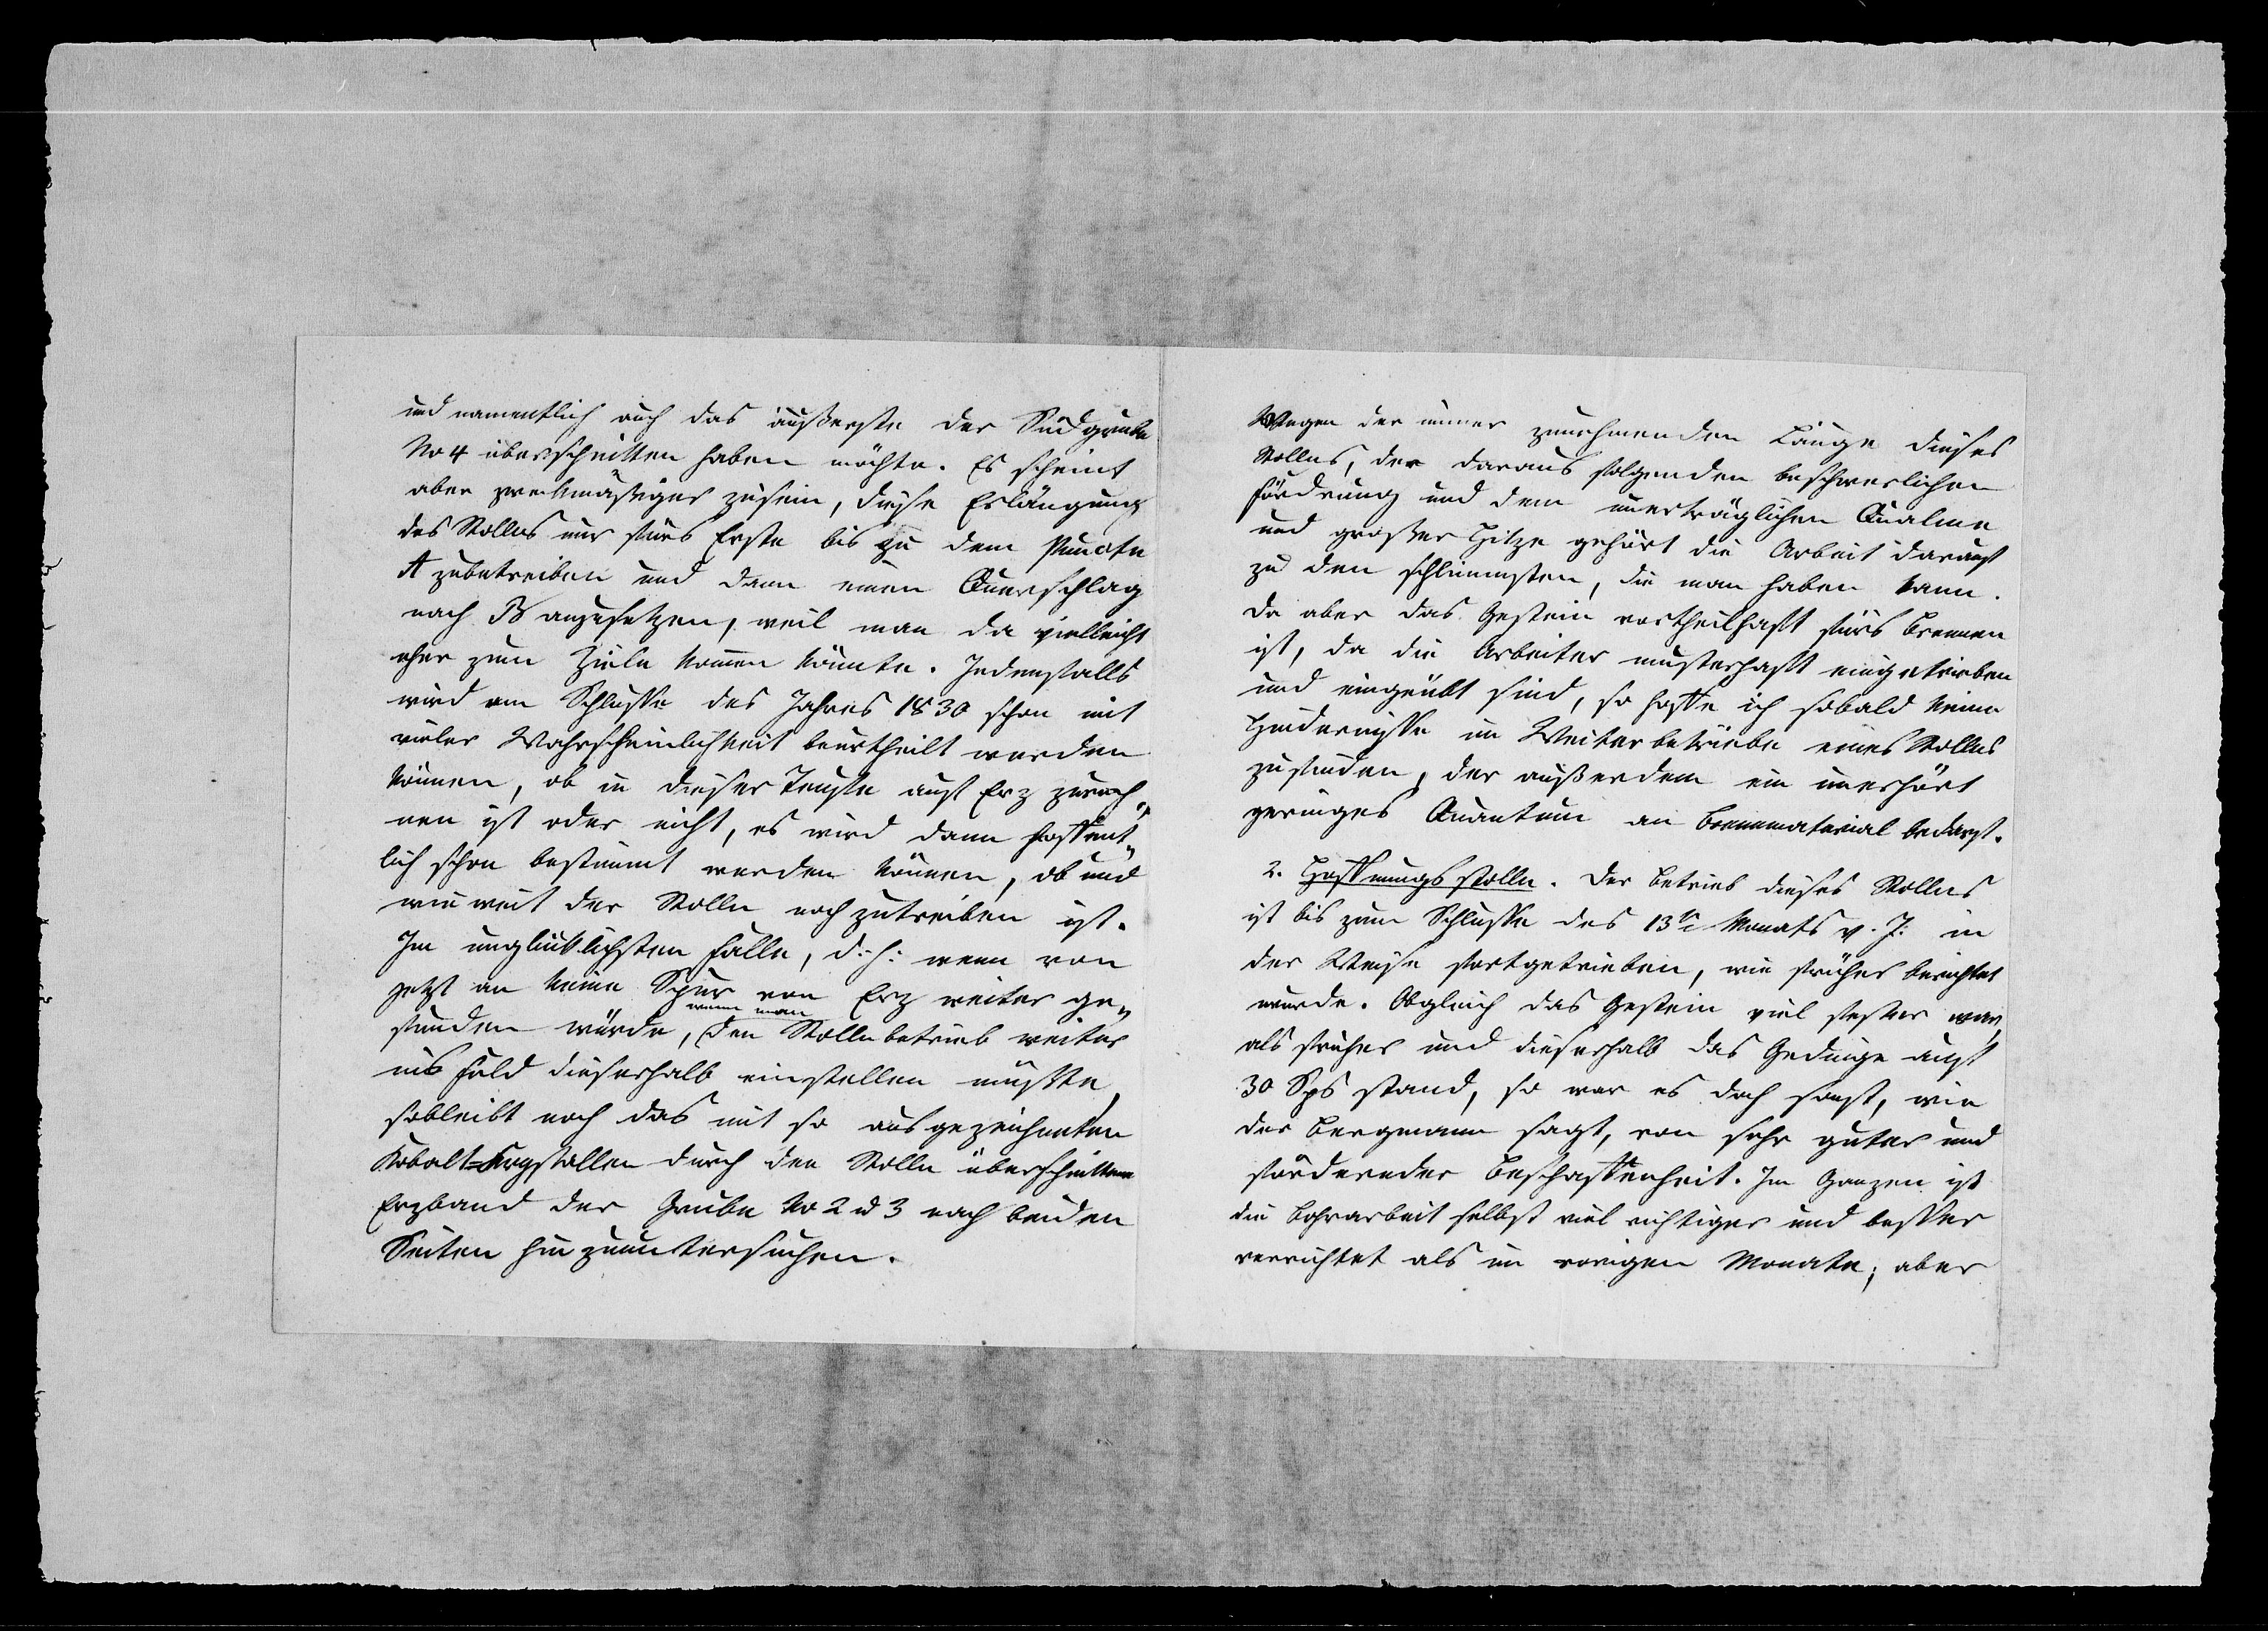 und namentlich auch das äußerste der Südgrube
No 4 überschritten haben möchte. Es scheint
aber zweckmäßiger zusein, diese Erlängung
des Stollns nur fürs Erste bis zu dem Puncte
A zubetreiben und dann einen Querschlag
nach B anzusetzen, weil man da vielleicht
eher zum Ziele kommen könnte. Jedenfalls
wird am Schlusse des Jahres 1830 schon mit
vieler Wahrscheinlichkeit beurtheilt werden
können, ob in dieser Teufte auf Erz zurech„
nen ist oder nicht, es wird dann hoffent„
lich schon bestimmt werden können, ob und
wie weit der Stolln noch zutreiben ist.
Im unglücklichsten Falle, d. h: wenn von
jetzt an keine Spur von Erz weiter ge„
wenn man
funden würde, den Stollnbetrieb weiter
ins Feld dieserhalb einstellen müsste,
sobleibt noch das mit so ausgezeichneten
Kobalt=Krystallen durch den Stolln überschrittene
Erzband der Grube No 2 u 3 nach beiden
Seiten hin zuuntersuchen.
Wegen der immer zunehmenden Länge dieses
Stollns, der daraus folgenden beschwerlichen
Fördrung und dem unerträglichen Qualme
und großer Hitze gehört die Arbeit darauf
zu den schlimmsten, die man haben kann.
Da aber das Gestein vortheilhaft fürs Brennen
ist, da die Arbeiter musterhaft eingetrieben
und eingeübt sind, so hoffe ich sobald keine
Hindernisse im Weiterbetriebe eines Stollns
zufinden, der außerdem ein unerhört
geringes Quantum an Brennmaterial bedarf.
2. Hoffnungsstolln. Der Betrieb dieses Stollns
ist bis zum Schlusse des 13tn Monats v. J: in
der Weise fortgetrieben, wie früher berichtet
wurde. Obgleich das Gestein viel fester war,
als früher und dieserhalb das Gedinge auf
30 Sps stand, so war es doch sonst, wie
der Bergmann sagt, von sehr guter und
fördernder Beschaffenheit. Im Ganzen ist
die Bohrarbeit selbst viel richtiger und besser
verrichtet als im vorigen Monate; aber